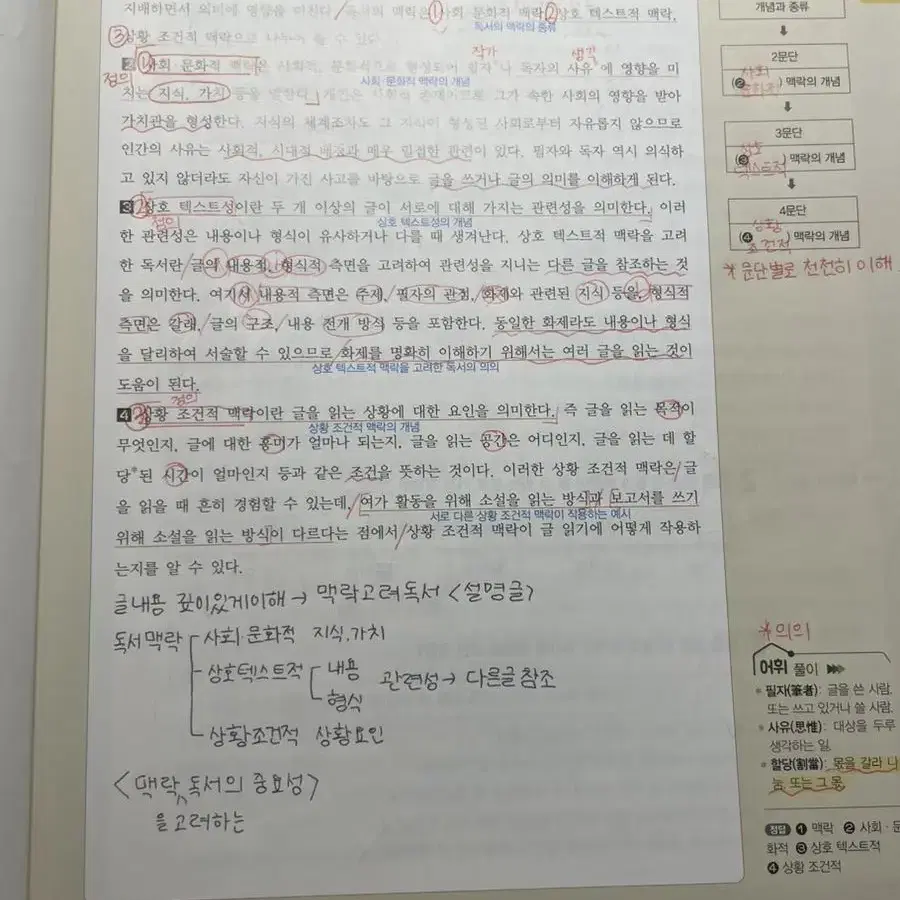 지배하면서 의미에 영향을 미친다. 독서의 맥락은 ①사회 문화적 맥락, ②상호 텍스트적 맥락,
독서의 맥락의 종류
③상황 조건적 맥락으로 나누어 볼 수 있다.
작가
생각
2 ①사회 문화적 맥락은 사회적, 문화적으로 형성되어 필자*나 독자의 사유*에 영향을 미
정의
사회·문화적 맥락의 개념
치는 지식, 가치 등을 말한다. 개인은 사회적 존재이므로 그가 속한 사회의 영향을 받아
가치관을 형성한다. 지식의 체계조차도 그 지식이 형성된 사회로부터 자유롭지 않으므로
인간의 사유는 사회적, 시대적 배경과 매우 밀접한 관련이 있다. 필자와 독자 역시 의식하
고 있지 않더라도 자신이 가진 사고를 바탕으로 글을 쓰거나 글의 의미를 이해하게 된다.
3 ②상호 텍스트성이란 두 개 이상의 글이 서로에 대해 가지는 관련성을 의미한다. 이러
정의
상호 텍스트성의 개념
한 관련성은 내용이나 형식이 유사하거나 다를 때 생겨난다. 상호 텍스트적 맥락을 고려
한 독서란 글의 내용적, 형식적 측면을 고려하여 관련성을 지니는 다른 글을 참조하는 것
을 의미한다. 여기서 내용적 측면은 주제, 필자의 관점, 화제와 관련된 지식 등을, 형식적
측면은 갈래, 글의 구조, 내용 전개 방식 등을 포함한다. 동일한 화제라도 내용이나 형식
을 달리하여 서술할 수 있으므로 화제를 명확히 이해하기 위해서는 여러 글을 읽는 것이
상호 텍스트적 맥락을 고려한 독서의 의의
도움이 된다.
정의
4 ③상황 조건적 맥락이란 글을 읽는 상황에 대한 요인을 의미한다. 즉 글을 읽는 목적이
상황 조건적 맥락의 개념
무엇인지, 글에 대한 흥미가 얼마나 되는지, 글을 읽는 공간은 어디인지, 글을 읽는 데 할
당*된 시간이 얼마인지 등과 같은 조건을 뜻하는 것이다. 이러한 상황 조건적 맥락은 글
을 읽을 때 흔히 경험할 수 있는데, 여가 활동을 위해 소설을 읽는 방식과 보고서를 쓰기
서로 다른 상황 조건적 맥락이 작용하는 예시
위해 소설을 읽는 방식이 다르다는 점에서 상황 조건적 맥락이 글 읽기에 어떻게 작용하
는지를 알 수 있다.
글내용 깊이있게이해 → 맥락고려독서 <설명글>
독서맥락 사회문화적 지식.가치
상호텍스트적 내용 관련성 → 다른글참조
형식
상황조건적 상황요인
<맥락 독서의 중요성>
을 고려하는
개념과 종류
2문단
(❷ 사회 문화적) 맥락의 개념
3문단
(❸ 상호 텍스트적) 맥락의 개념
4문단
(❹ 상황 조건적) 맥락의 개념
*문단별로 천천히 이해
*의의
어휘 풀이
필자(筆者): 글을 쓴 사람.
또는 쓰고 있거나 쓸 사람.
사유(思惟): 대상을 두루
생각하는 일.
할당(割當): 몫을 갈라 나
눔. 또는 그 몫.
정답 ❶ 맥락 ❷ 사회·문
화적 ❸ 상호 텍스트적
❹ 상황 조건적